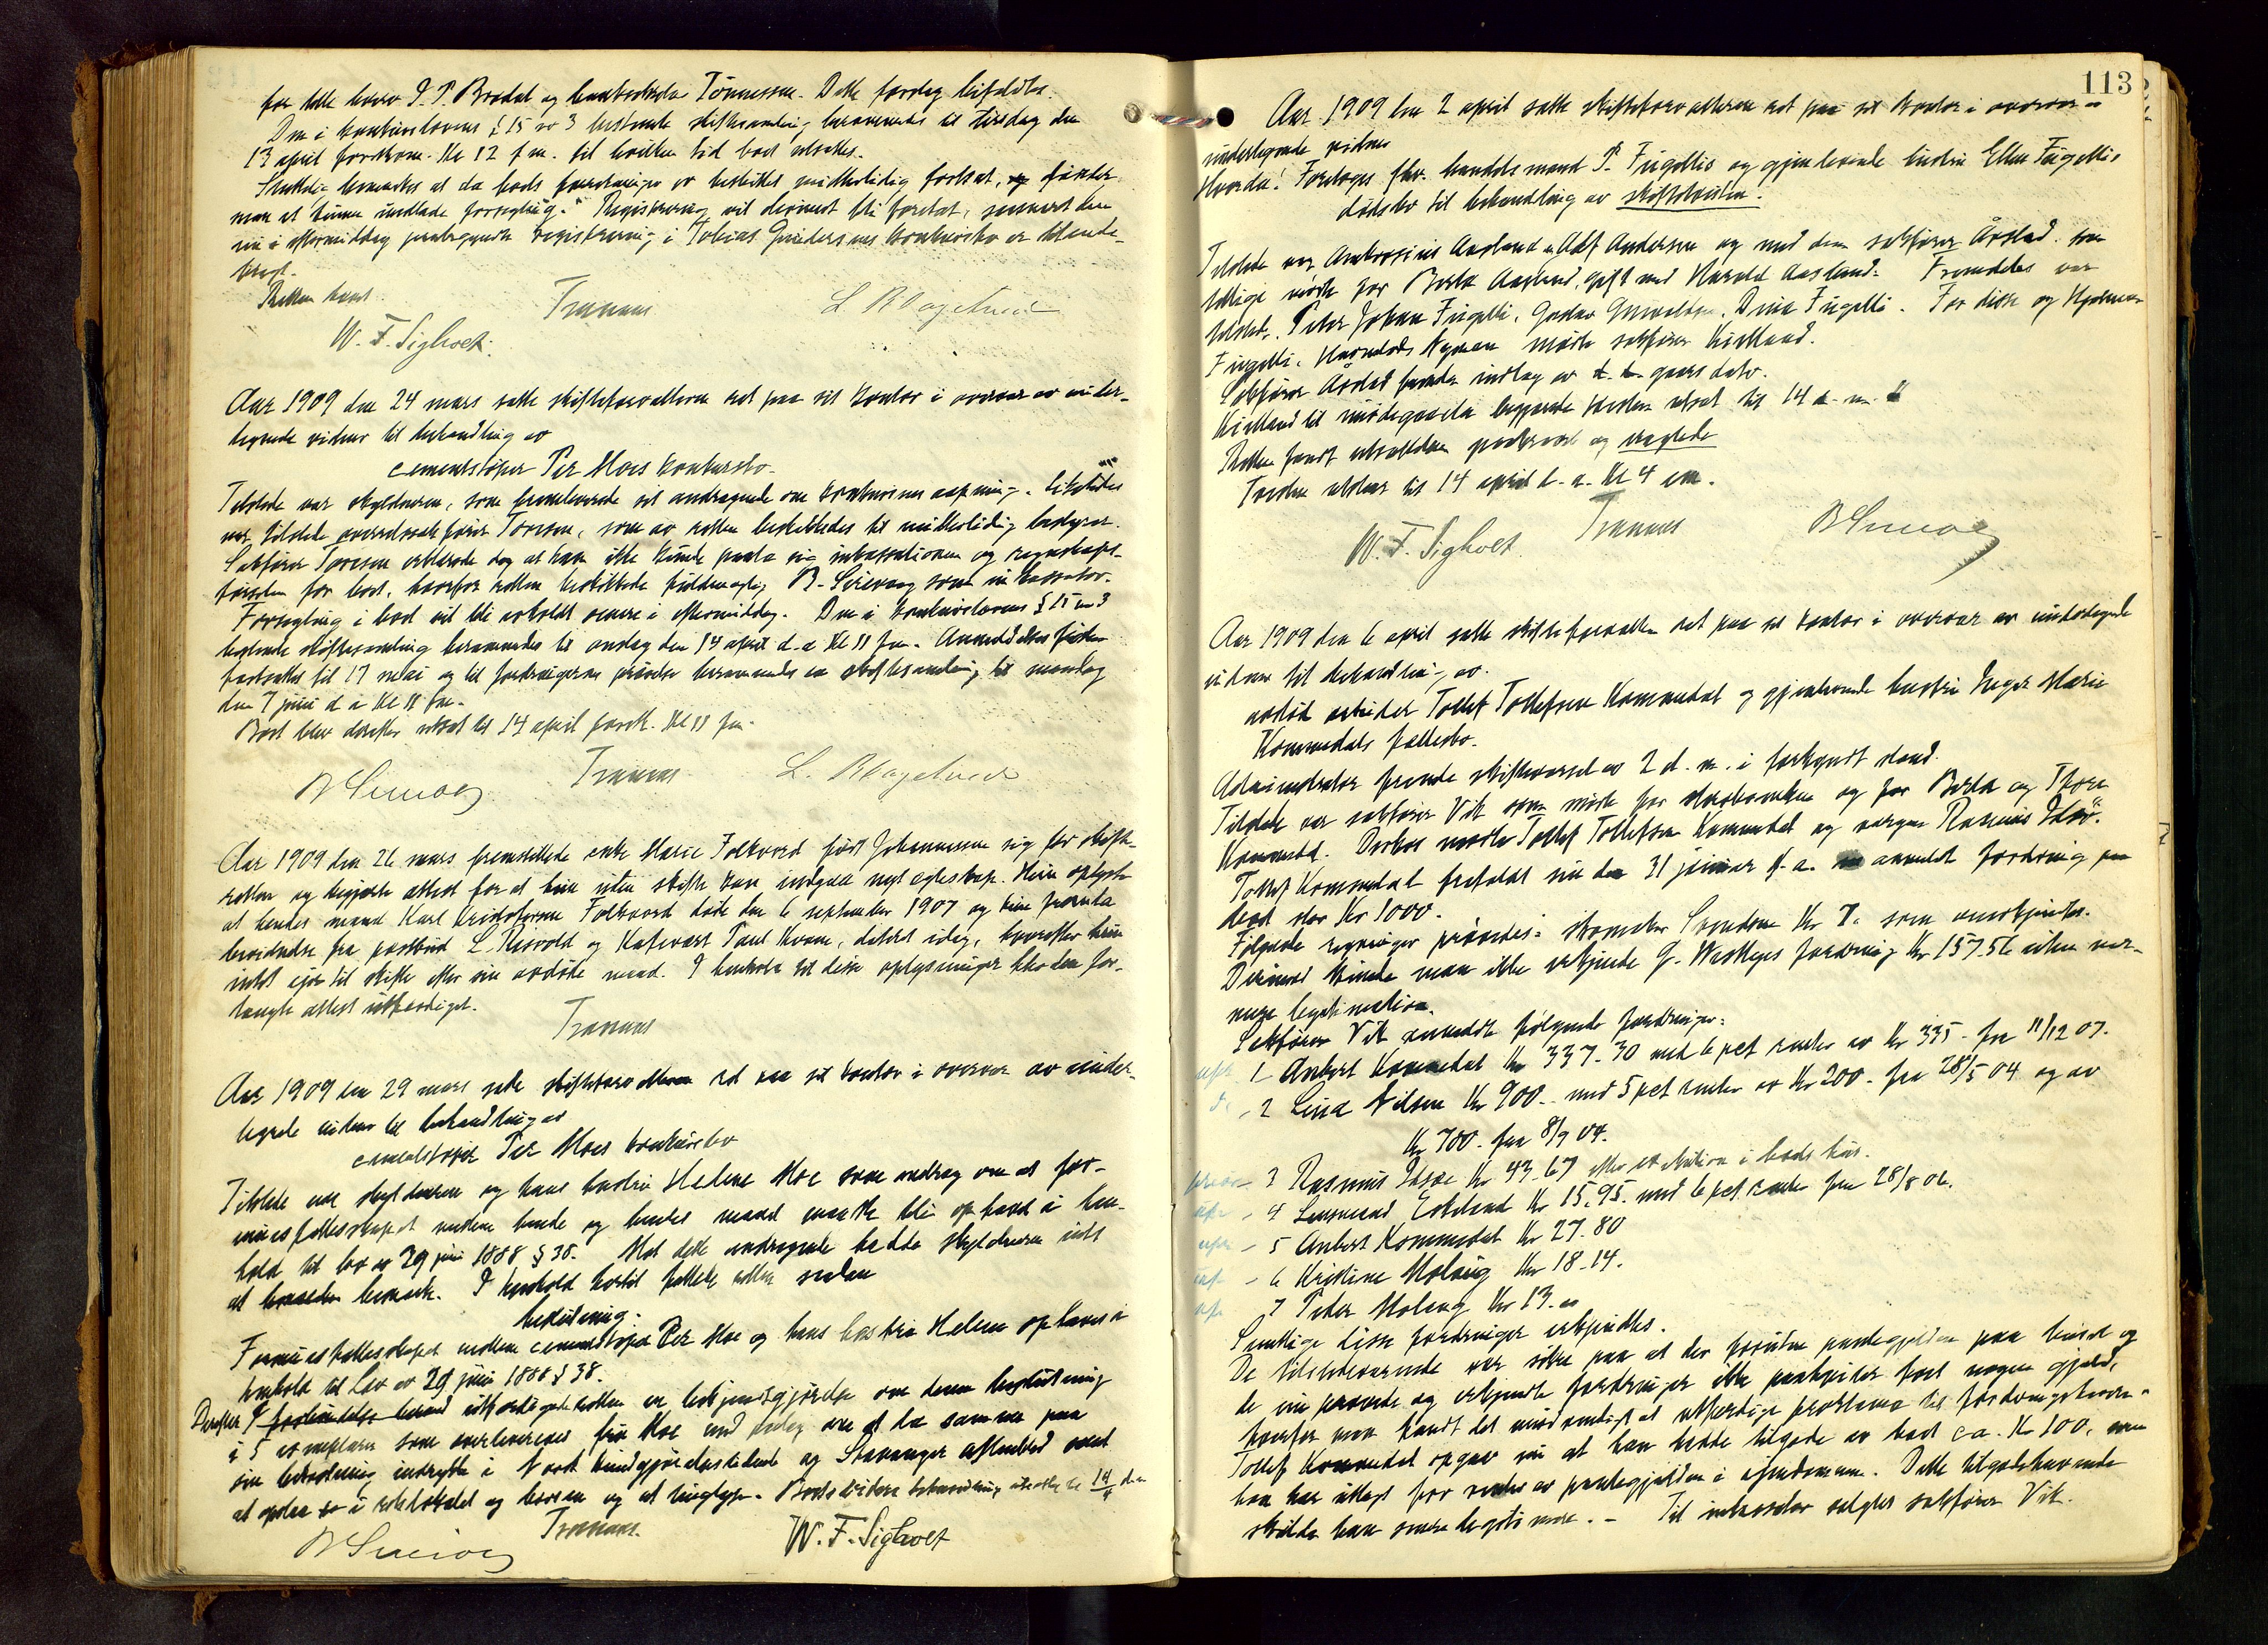 for dette hverv P. T. Bradal og Tönnessen. Dette forslag bifaldtes.
Den i konkurslovens § 15 nr 3 bestemte skiftesamling berammedes til tirsdag den
13 april førstkom. Kl 12 fm. til hvilken tid boet utsattes.
bemerkes at da boets er beskikket midlertidig forsat, finder
man at kunne undlade forsegling. Registrering vil derimot bli foretat, snarest den
nu i eftermiddag paabegyndte registrering i Tobias konkursbo er tilende-
bragt.
Retten hævet.
Tranaas L. B. Vagelund
W. F. Sigholt.
Aar 1909 den 24 mars satte skifteforvalteren ret paa sit kontor i overvær av under-
tegnede vidner til behandling av
cementstøper Per Moes konkursbo.
Tilstede var skyldneren, som fremleverede sit andragende om konkursens aapning. Likeledes
var tilstede overretssakfører Toresen, som av retten beskikkedes til midlertidig bestyrer.
Sakfører Toresen erklærede dog at han ikke kunde paata sig inkassationen og regnskaps-
førselen for boet, hvorfor retten beskikkede fuldmægtig B. Sirevaag som inkassator.
Forsegling i boet vil bli avholdt senere i eftermiddag. Den i konkurslovens § 15 nr 3
bestemte skiftesamling berammedes til onsdag den 14 april d. a. Kl 11 fm. Anmeldelsesfristen
fastsattes til 17 mai og til fordringernes prøvelse berammedes en skiftesamling til mandag
den 7 juni d. a. Kl 11 fm.
Boet blev derefter utsat til 14 april førstk. Kl 11 fm.
B Sirevaag Tranaas L. B. Vagelund
Aar 1909 den 26 mars fremstillede enke Marie Folkvord født Johannessen sig for skifte-
retten og begjærte attest for at hun uten skifte kan indgaa nyt egteskap. Hun oplyste
at hendes mand Karl Kristofersen Folkvord døde den 6 september 1907 og hun fremla
bevidnelse fra postbud L. Risvold og Kafevært Paul Kvam, dateret idag, hvorefter hun
intet eier til skifte efter sin avdøde mand. I henhold til disse oplysninger blev den for-
langte attest utfærdiget.
Tranaas
Aar 1909 den 29 mars satte skifteforvalteren ret paa sit kontor i overvær av under-
tegnede vidner til behandling av
cementstøper Per Moes konkursbo
Tilstede var skyldneren og hans hustru Helene Moe som androg om at for-
muesfællesskapet mellem hende og hendes mand maatte bli ophævet i hen-
hold til lov av 29 juni 1888 § 38. Mot dette andragende hadde skyldneren intet
at bemerke. I henhold hertil fattede retten saadan
beslutning:
Formuesfællesskapet mellem cementstøper Per Moe og hans hustru Helene ophæves i
henhold til Lov av 29 juni 1888 § 38.
Derefter utfærdigede retten en bekjendtgjørelse om denne beslutning
i 5 exemplarer som overleveredes fru Moe med paalæg om at la samme paa
sin bekostning indrykke i Norsk kundgjørelsestidende og Stavanger aftenblad samt
at opslaa i retslokalet og børsen og at tinglyse. Boets videre behandling utsattes til 14/4 d. a.
B Sirevaag Tranaas W. F. Sigholt
113
Aar 1909 den 2 april satte skifteforvalteren ret paa sit kontor i overvær av
undertegnede vidner
Hvorda: Foretoges fhv. handelsmand P. Fugellis og gjenlevende hustru Ellen Fugellis
dødsbo til behandling av skiftetvisten.
Tilstede var Ambrosius Aasland, Adolf Andersen og med dem sakfører Årstad som
tillige møtte for Berta Aasland, gift med Harald Aasland. Fremdeles var
tilstede Peter Johan Fugelli, Gustav, Dina Fugelli. For disse og Hjalmar
Fugelli, Nyman møtte sakfører Kielland.
Sakfører Årstad fremla indlæg av gaars dato.
Kielland til begjærede tvisten utsat til 14 d. m.
Retten fandt utsættelsen paakrævet og
Tvisten utsættes til 14 april d. a. Kl 4 em.
W. F. Sigholt. Tranaas B Sirevaag
Aar 1909 den 6 april satte skifteforvalteren ret paa sit kontor i overvær av undertegnede
vidner til behandling av
avdød arbeider Tollef Tollefsen Kommedal og gjenlevende hustru Inger Marie
Kommedals fællesbo.
Administrator fremla skiftevarsel av 2 d. m. i forkyndt stand.
Tilstede var sakfører Vik som møtte for og for Berta og Thora
Kommedal. Derhos møtte Tollef Tollefsen Kommedal og vergen Rasmus Idsø.
Tollef Kommedal frafaldt sin den 31 januar d. a. anmeldte fordring paa
dead stor Kr 1000.
Følgende regninger prøvedes: skomaker Svendsen Kr 7. som anerkjendtes.
Derimot kunde man ikke erkjende G. fordring Kr 157.56 uten nær-
mere legitimation.
Sakfører Vik anmeldte følgende fordringer:
1 Anbert Kommedal Kr 337.30 med 6 pct renter av Kr 335.- fra 11/12 07.
2 Lina Nilsen Kr 900.- med 5 pct renter av Kr 200.- fra 28/5 04 og av
Kr 700.- fra 8/9 04.
3 Rasmus Idsøe Kr 43.67 efter i boets hus.
4 Lensmand Eskeland Kr 15.95. med 6 pct renter fra 28/8 06.
5 Anbert Kommedal Kr 27.80
6 Kristine Molaug Kr 18.14.
7 Peder Molaug Kr 13.-
Samtlige disse fordringer erkjendtes.
De tilstedeværende var sikre paa at der foruten pantegjelden paa huset og
de nu prøvede og erkjendte fordringer ikke paahviler boet nogen gjæld,
hvorfor man fandt det unødvendigt at utfærdige proklama til fordringshavere.
Tollef Kommedal opgav nu at han hadde tilgode av boet ca. Kr 100, som
han har utlagt for renter av pantegjælden i eiendommen. Dette tilgodehavende
skulde han senere legitimere. - Til inkassator valgtes sakfører Vik.